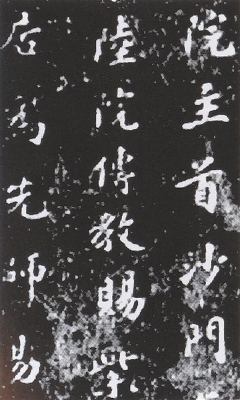 院主首沙門
陸院傳教賜紫
為先師易